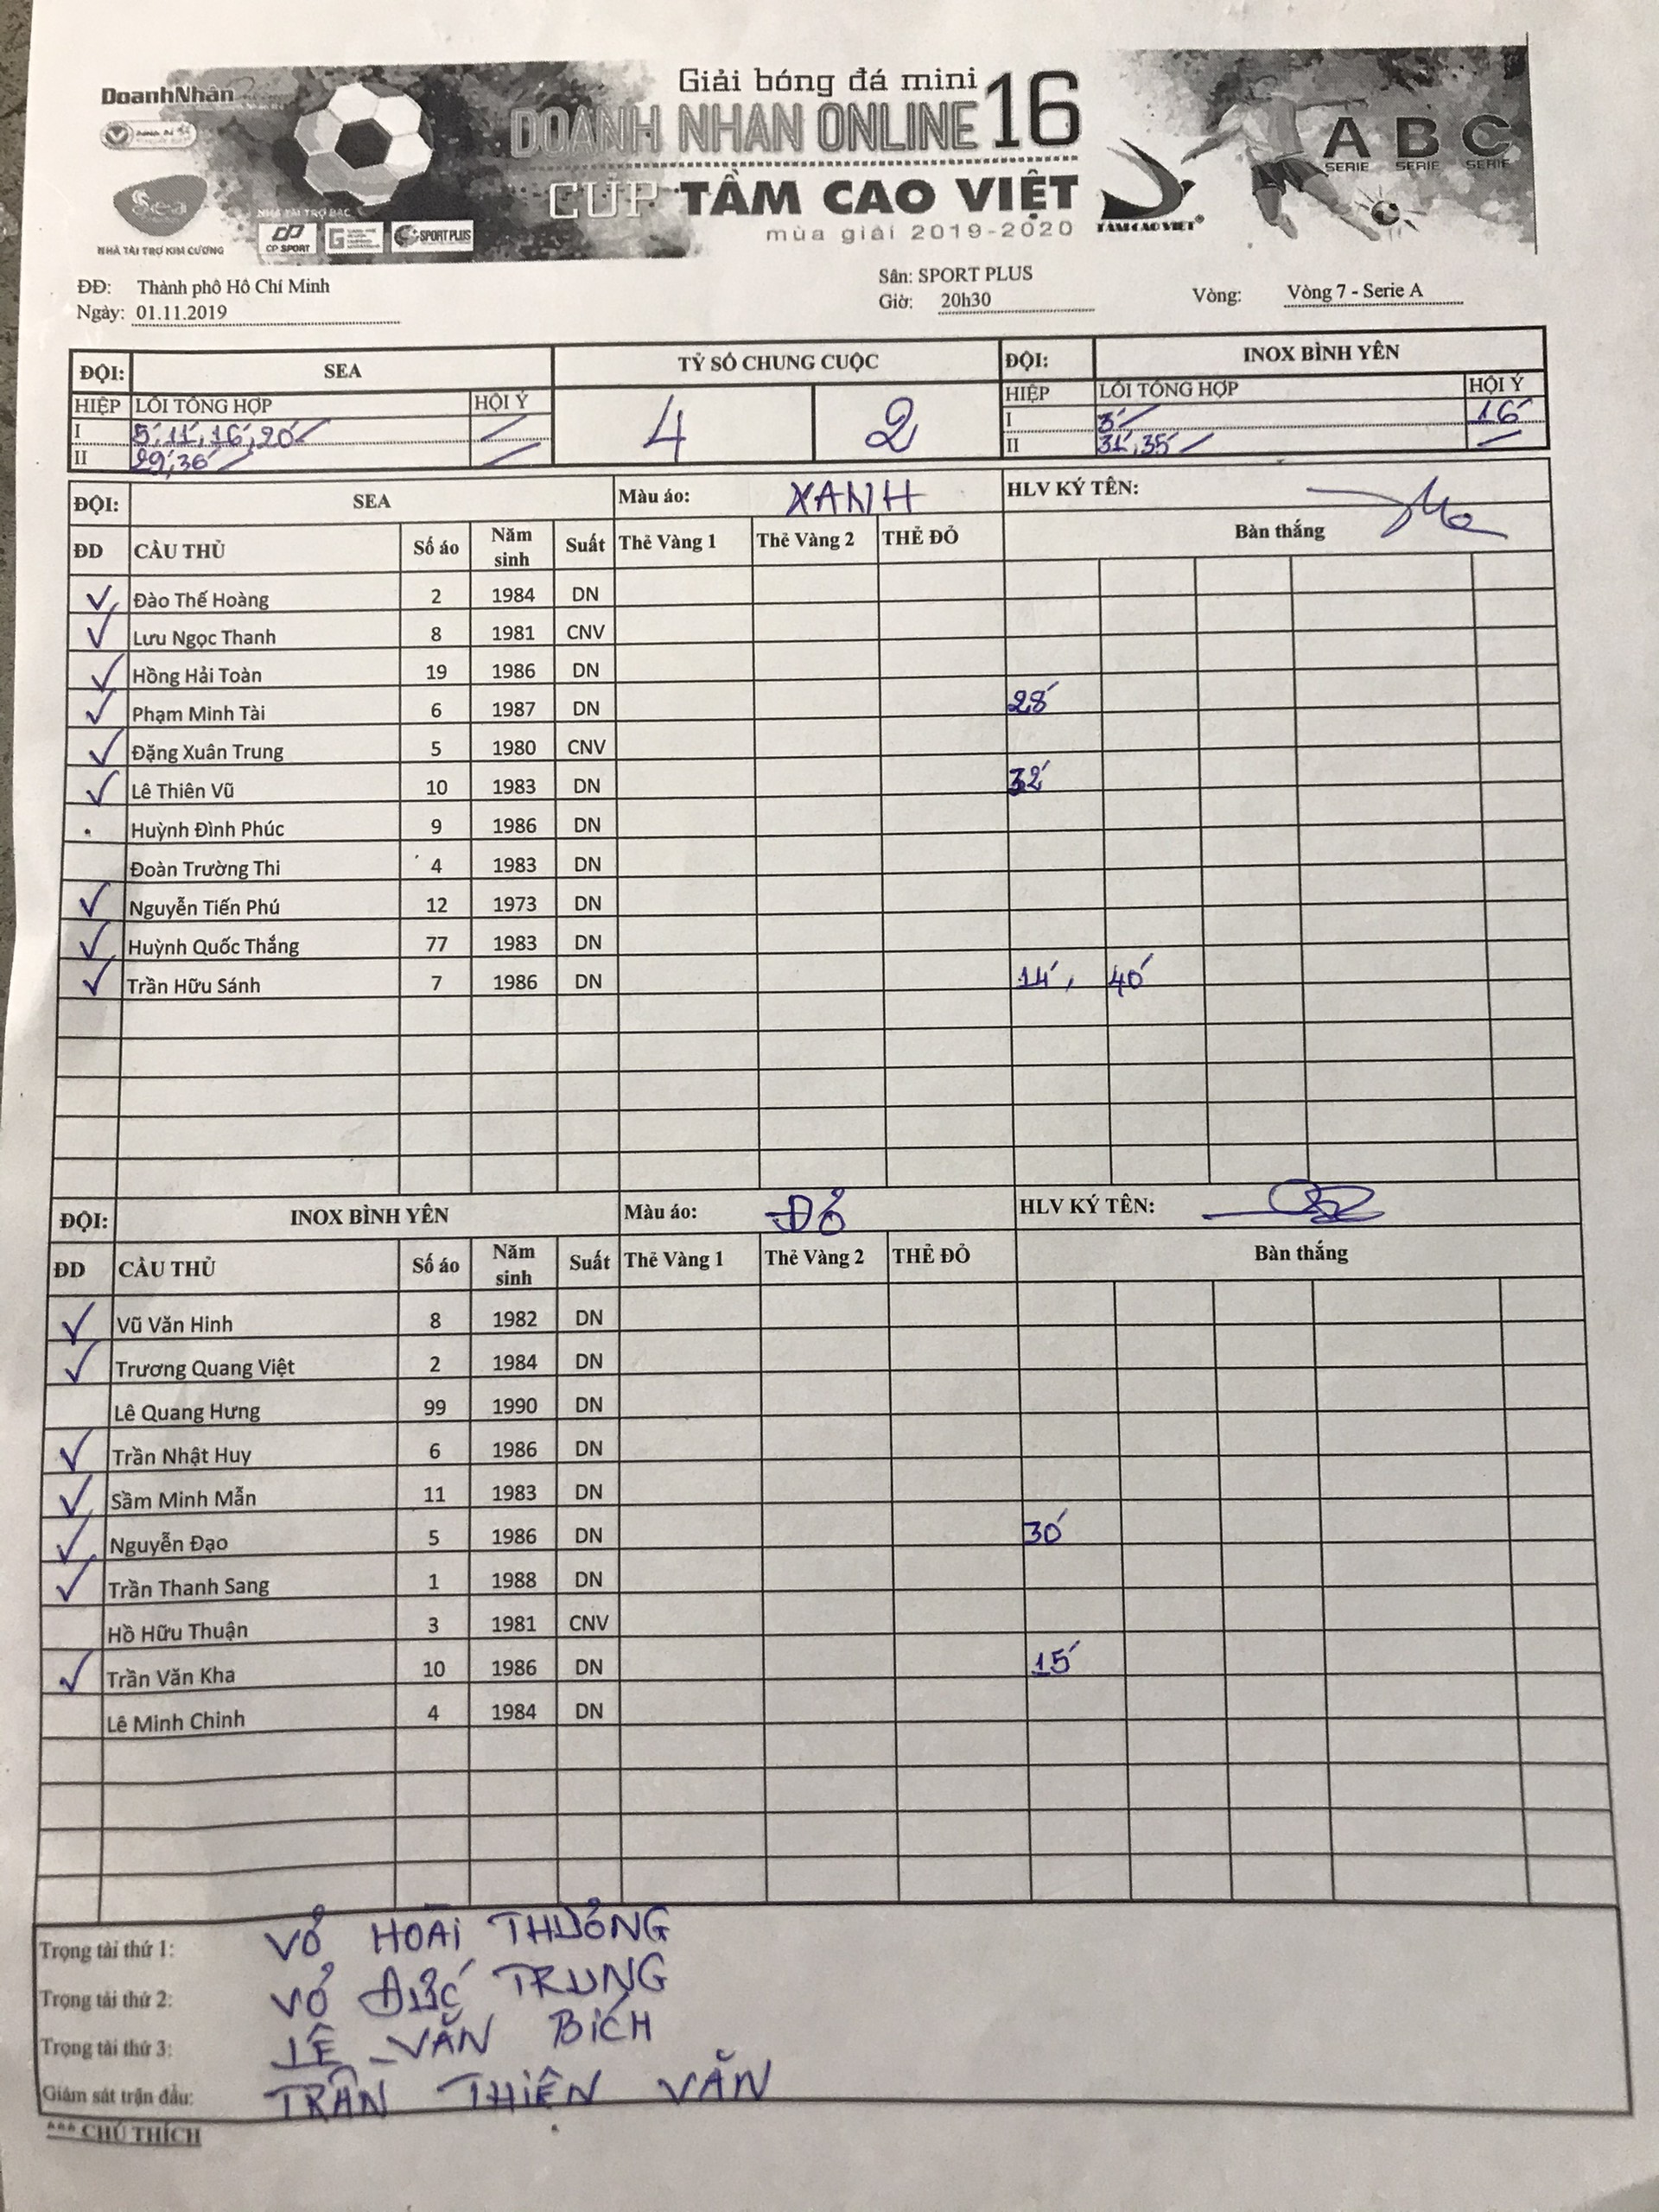 DoanhNhân
Giải bóng đá mini
DOANH NHAN ONLINE 16
CUP TẦM CAO VIỆT
mùa giải 2019-2020
Sea
NHÀ TÀI TRỢ KIM CƯƠNG
NHÀ TÀI TRỢ BẠC
CP SPORT
SPORT PLUS
TẦM CAO VIỆT
A SERIE B SERIE C SERIE
ĐĐ: Thành phố Hồ Chí Minh Sân: SPORT PLUS
Ngày: 01.11.2019 Giờ: 20h30 Vòng: Vòng 7 - Serie A
ĐỘI: SEA TỶ SỐ CHUNG CUỘC ĐỘI: INOX BÌNH YÊN
HIỆP LỖI TỔNG HỢP HỘI Ý 4 2 HIỆP LỖI TỔNG HỢP HỘI Ý
I 5', 11', 16', 20' I 3' 16'
II 29', 36' II 31', 35'
ĐỘI: SEA Màu áo: XANH HLV KÝ TÊN:
ĐD CẦU THỦ Số áo Năm sinh Suất Thẻ Vàng 1 Thẻ Vàng 2 THẺ ĐỎ Bàn thắng
✓ Đào Thế Hoàng 2 1984 DN
✓ Lưu Ngọc Thanh 8 1981 CNV
✓ Hồng Hải Toàn 19 1986 DN
✓ Phạm Minh Tài 6 1987 DN 28'
✓ Đặng Xuân Trung 5 1980 CNV
✓ Lê Thiên Vũ 10 1983 DN 32'
Huỳnh Đình Phúc 9 1986 DN
Đoàn Trường Thi 4 1983 DN
✓ Nguyễn Tiến Phú 12 1973 DN
✓ Huỳnh Quốc Thắng 77 1983 DN
✓ Trần Hữu Sánh 7 1986 DN 14', 40'
ĐỘI: INOX BÌNH YÊN Màu áo: ĐỎ HLV KÝ TÊN:
ĐD CẦU THỦ Số áo Năm sinh Suất Thẻ Vàng 1 Thẻ Vàng 2 THẺ ĐỎ Bàn thắng
✓ Vũ Văn Hinh 8 1982 DN
✓ Trương Quang Việt 2 1984 DN
Lê Quang Hưng 99 1990 DN
✓ Trần Nhật Huy 6 1986 DN
✓ Sầm Minh Mẫn 11 1983 DN
✓ Nguyễn Đạo 5 1986 DN 30'
✓ Trần Thanh Sang 1 1988 DN
Hồ Hữu Thuận 3 1981 CNV
✓ Trần Văn Kha 10 1986 DN 15'
Lê Minh Chinh 4 1984 DN
Trọng tài thứ 1: VÕ HOÀI THƯỞNG
Trọng tài thứ 2: VÕ ĐỨC TRUNG
Trọng tài thứ 3: LÊ VĂN BÍCH
Giám sát trận đấu: TRẦN THIÊN VĂN
*** CHÚ THÍCH